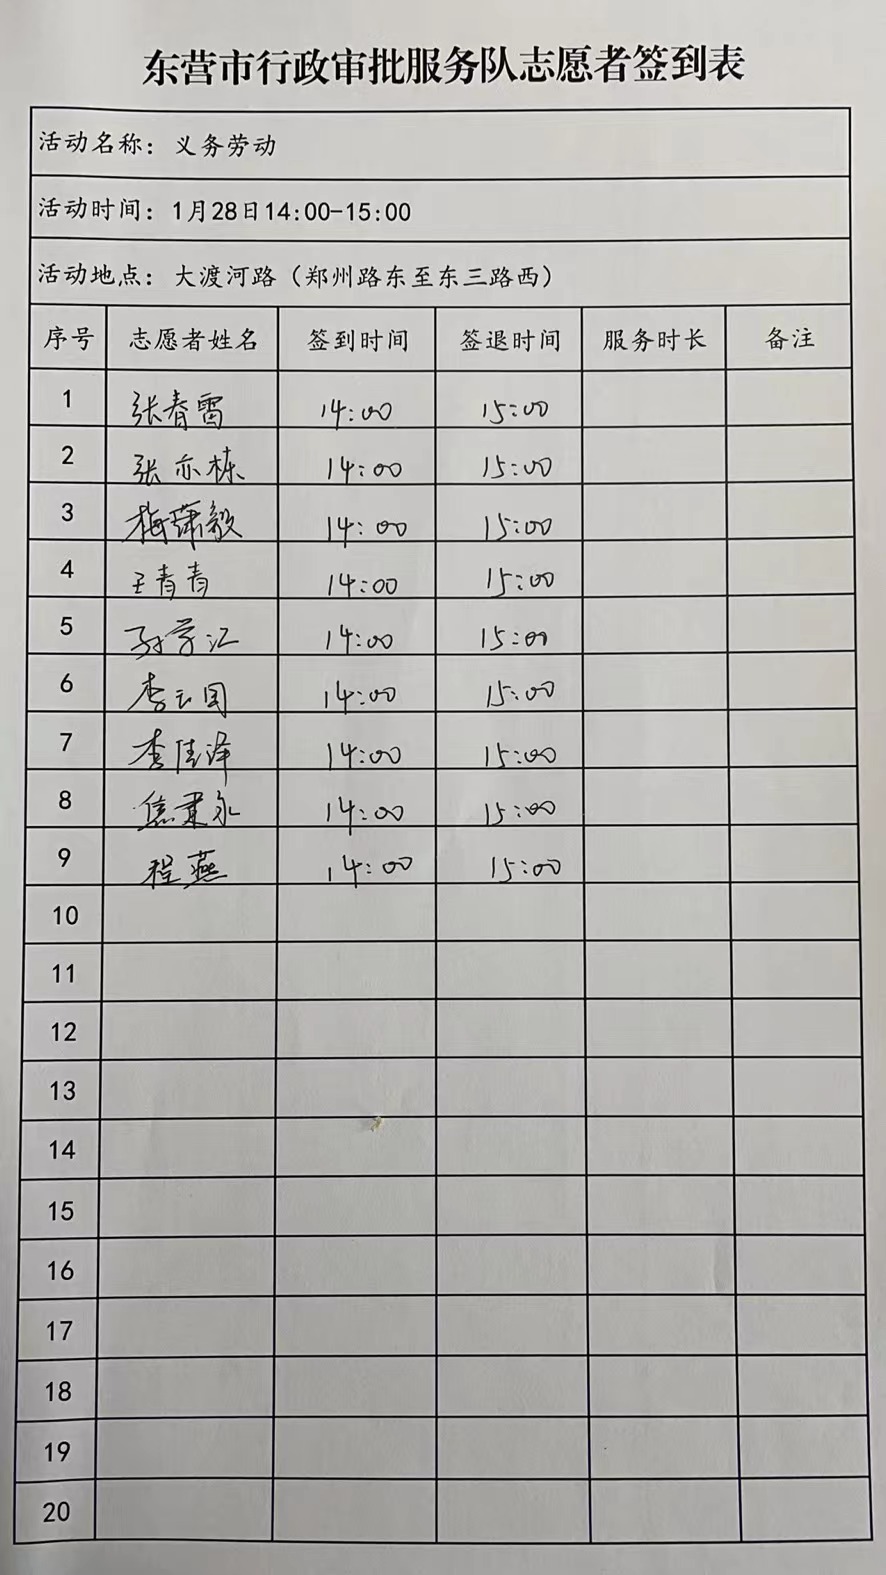 东营市行政审批服务队志愿者签到表
活动名称：义务劳动
活动时间：1月28日14:00-15:00
活动地点：大渡河路（郑州路东至东三路西）
序号 志愿者姓名 签到时间 签退时间 服务时长 备注
1 张春雷 14:00 15:00
2 张亦栋 14:00 15:00
3 14:00 15:00
4 王青青 14:00 15:00
5 孙学江 14:00 15:00
6 李云国 14:00 15:00
7 李佳泽 14:00 15:00
8 14:00 15:00
9 程燕 14:00 15:00
10
11
12
13
14
15
16
17
18
19
20